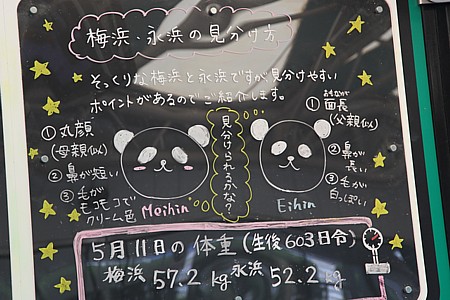 梅浜・永浜の見分け方
そっくりな梅浜と永浜ですが、見分けやすい
ポイントがあるのでご紹介します。
① 丸顔
(母親似)
② 鼻が短い
③ 毛が
モコモコで
クリーム色
Meihin
見分けられるかな?
① 面長
(父親似)
② 鼻が
長い
③ 毛が
白っぽい
Eihin
5月11日の体重(生後603日令)
梅浜 57.2 kg 永浜 52.2 kg